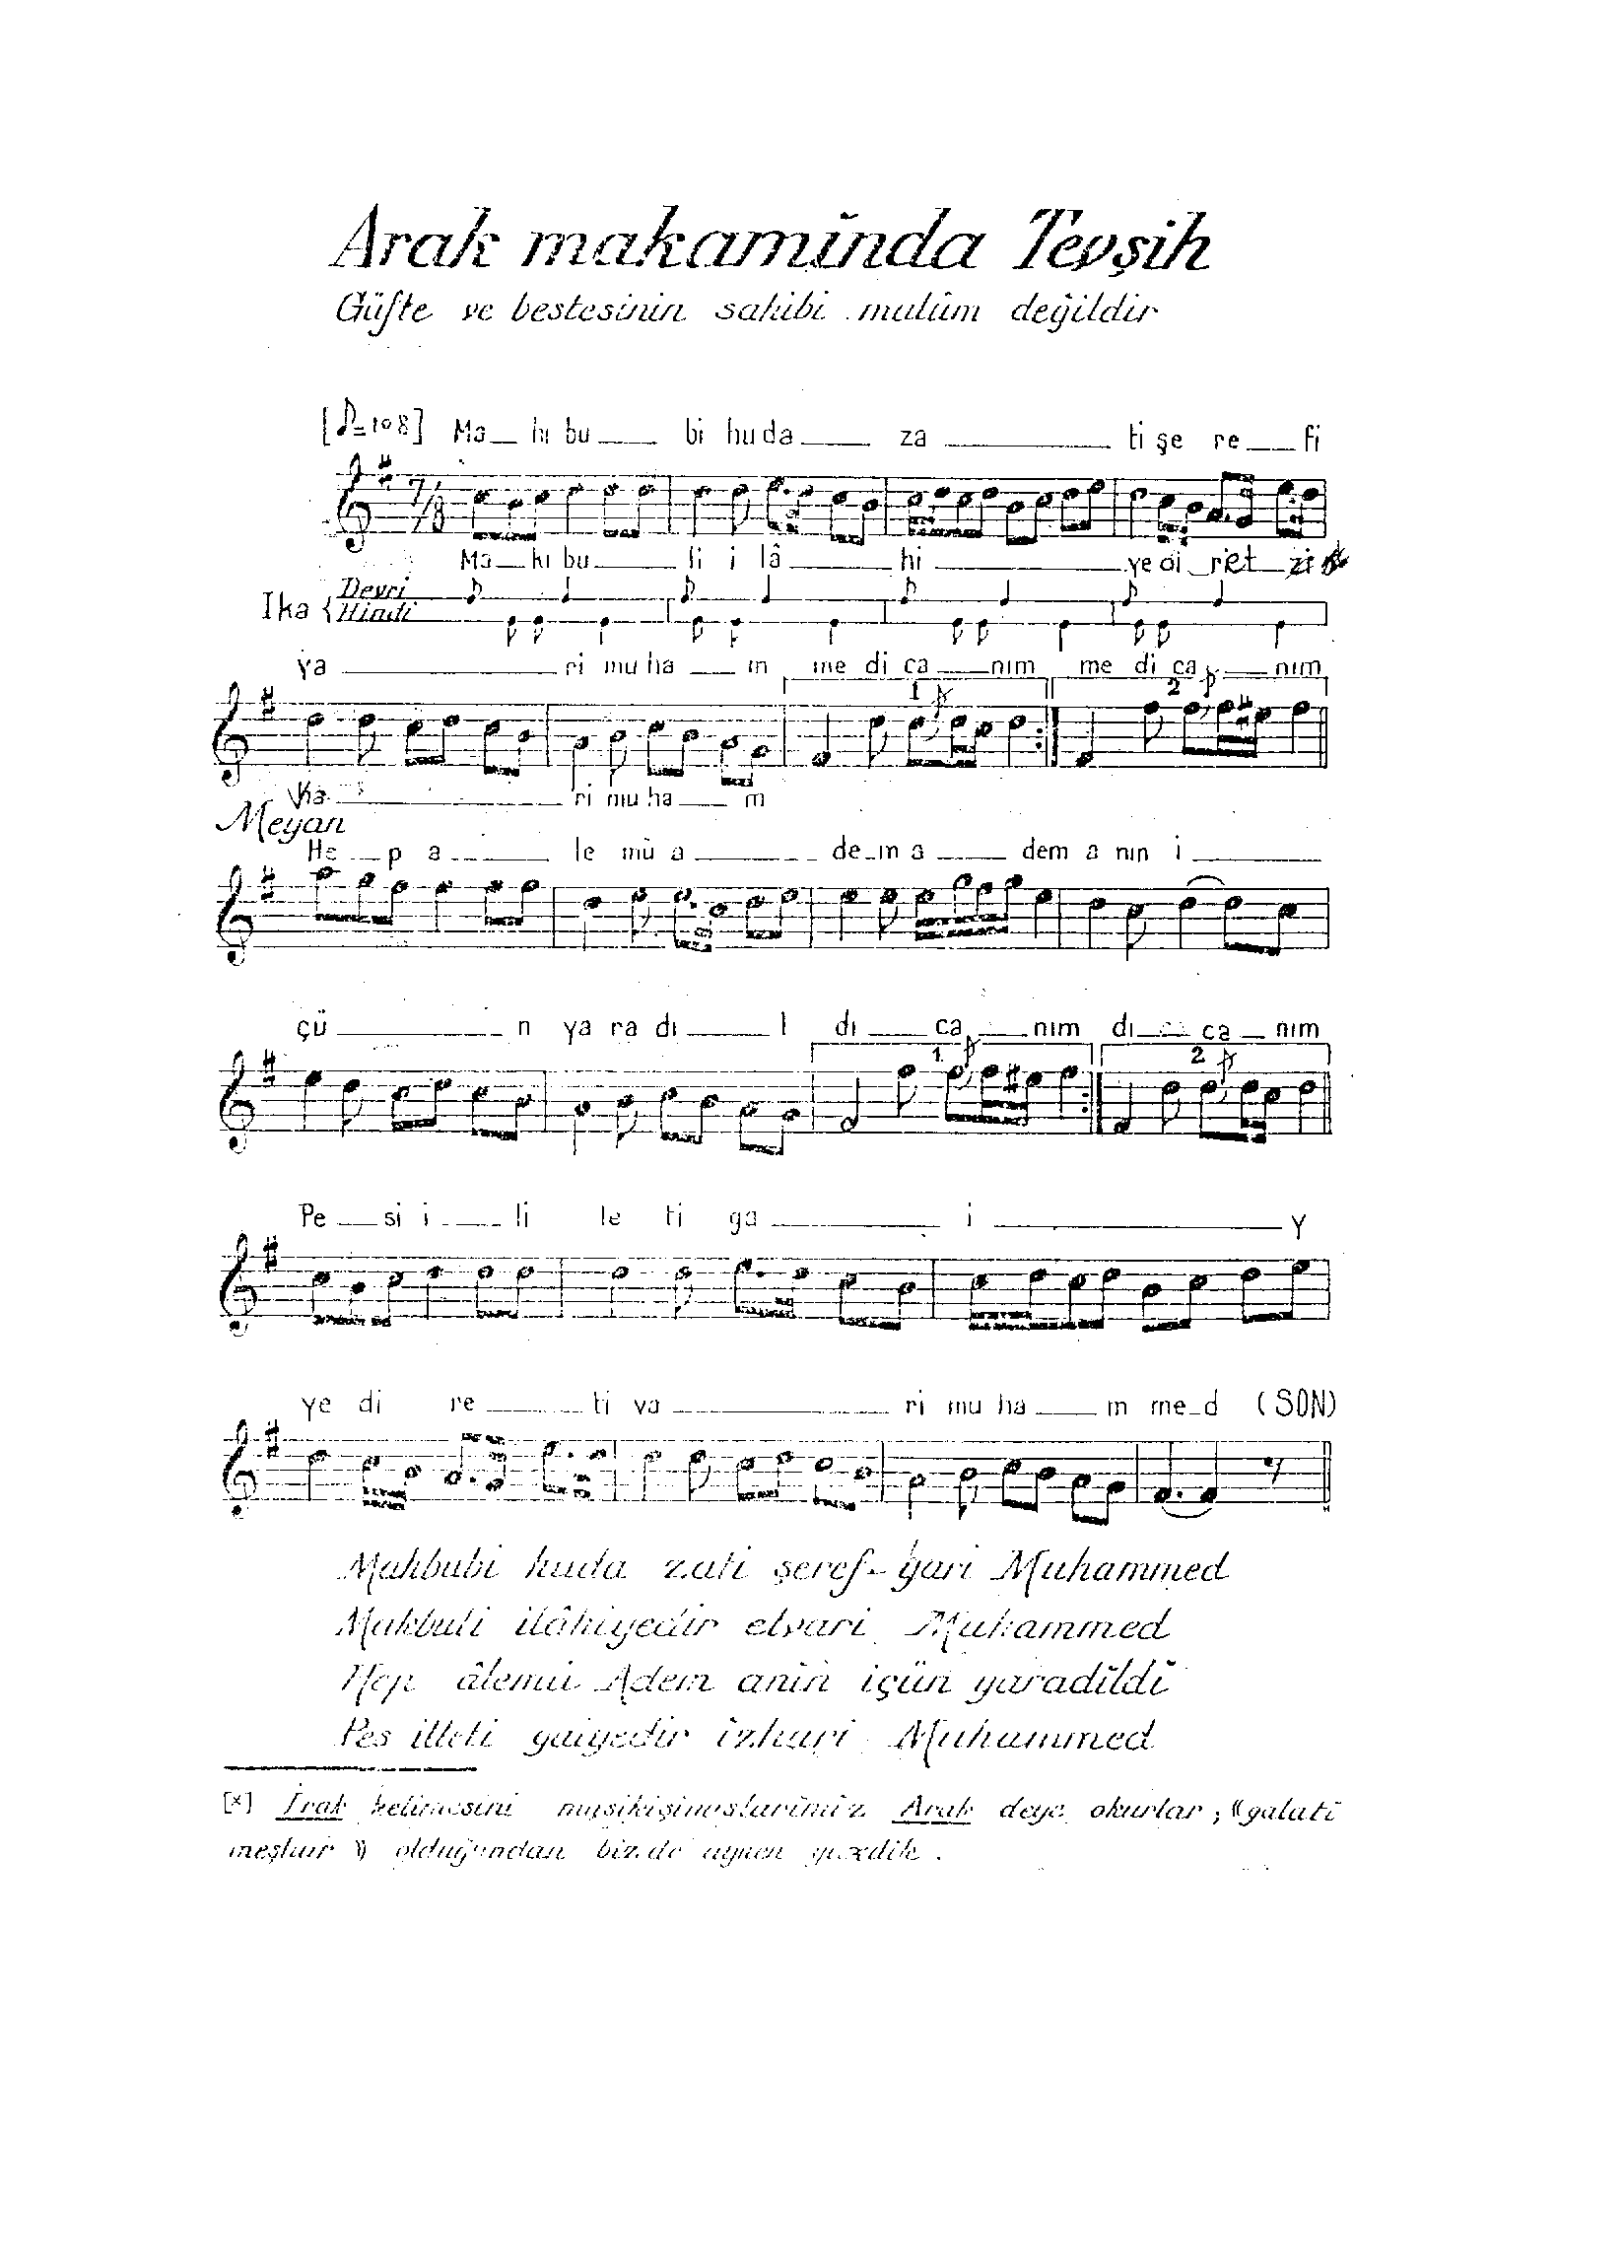 Arak makamĭnda Tevşih
Güfte ve bestesinin sahibi mulûm değildir
[♪=108] Ma__ hı bu____ bi hu da____ za ____ ti şe re___fi
7/8
Ma__hı bu____ li i lâ____ hi ____ ye di_ r et__
Ika { Devri
Hindi
ya ____ ri mu ha __ m me di ca__nım me di ca__nım
1 2
____ ri mu ha__ m
Meyan
He__p a____ le mü a____ de_m a____ dem a nın i____
çü ____ n ya ra dı___ l dı___ ca___nım dı___ ca_ nım
1 2
Pe __ si i ___ li le ti ga ____ i ____ y
ye di re ____ ti va ____ ri mu ha___ m me_d (SON)
Mahbubi huda zati şeref- yari Muhammed
Makbuli ilâhiyedir etvari Muhammed
Hep âlemü Adem anin içün yaradĭldĭ
Pes illeti gaiyedir izhari Muhammed
[x] Irak kelimesini musikişinaslarĭmĭz Arak deye okurlar ; «galatĭ
meşhur » olduğundan biz de aynen yazdik .